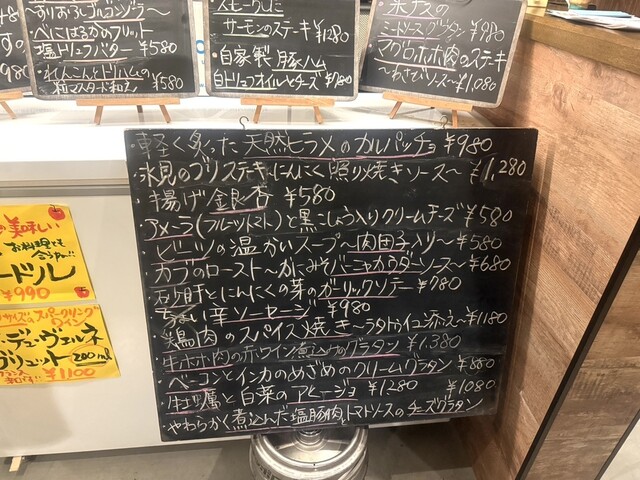 すりおろしゴルゴンゾーラ〜
べにはるかのフリット
塩トリュフバター ¥580
れんこんと生ハムの
粒マスタード和え ¥580
スモークサーモン
サーモンのステーキ ¥1280
自家製 豚ハム
白トリュフオイルとチーズ
米ナスの
ミートソースグラタン ¥980
マグロホホ肉のステーキ
〜わさびソース〜 ¥1,080
・軽く炙った天然ヒラメのカルパッチョ ¥980
・氷見のブリステキ〜にんにく照り焼きソース〜 ¥1,280
・揚げ銀杏 ¥580
・アメーラ(フルーツトマト)と黒こしょう入りクリームチーズ ¥580
・ビーツの温かいスープ〜肉団子入り〜 ¥580
・カブのロースト〜かにみそバーニャカウダーソース〜 ¥680
・砂肝とにんにくの芽のガーリックソテー ¥780
・ちょい辛ソーセージ ¥980
・鶏肉のスパイス焼き〜ラタトゥイユ添え〜 ¥1180
・牛ホホ肉の赤ワイン煮込みのグラタン ¥1,380
・ベーコンとインカのめざめのクリームグラタン ¥880
・生牡蠣と白菜のアヒージョ ¥1,280
・やわらかく煮込んだ塩豚肉、トマトソースのチーズグラタン ¥1080
美味しい
お料理にも
合う〜!!
ードソレ
¥990
サイズ スパークリングワイン
・デュ・ヴェルネ
ブリュット 200ml
¥1100